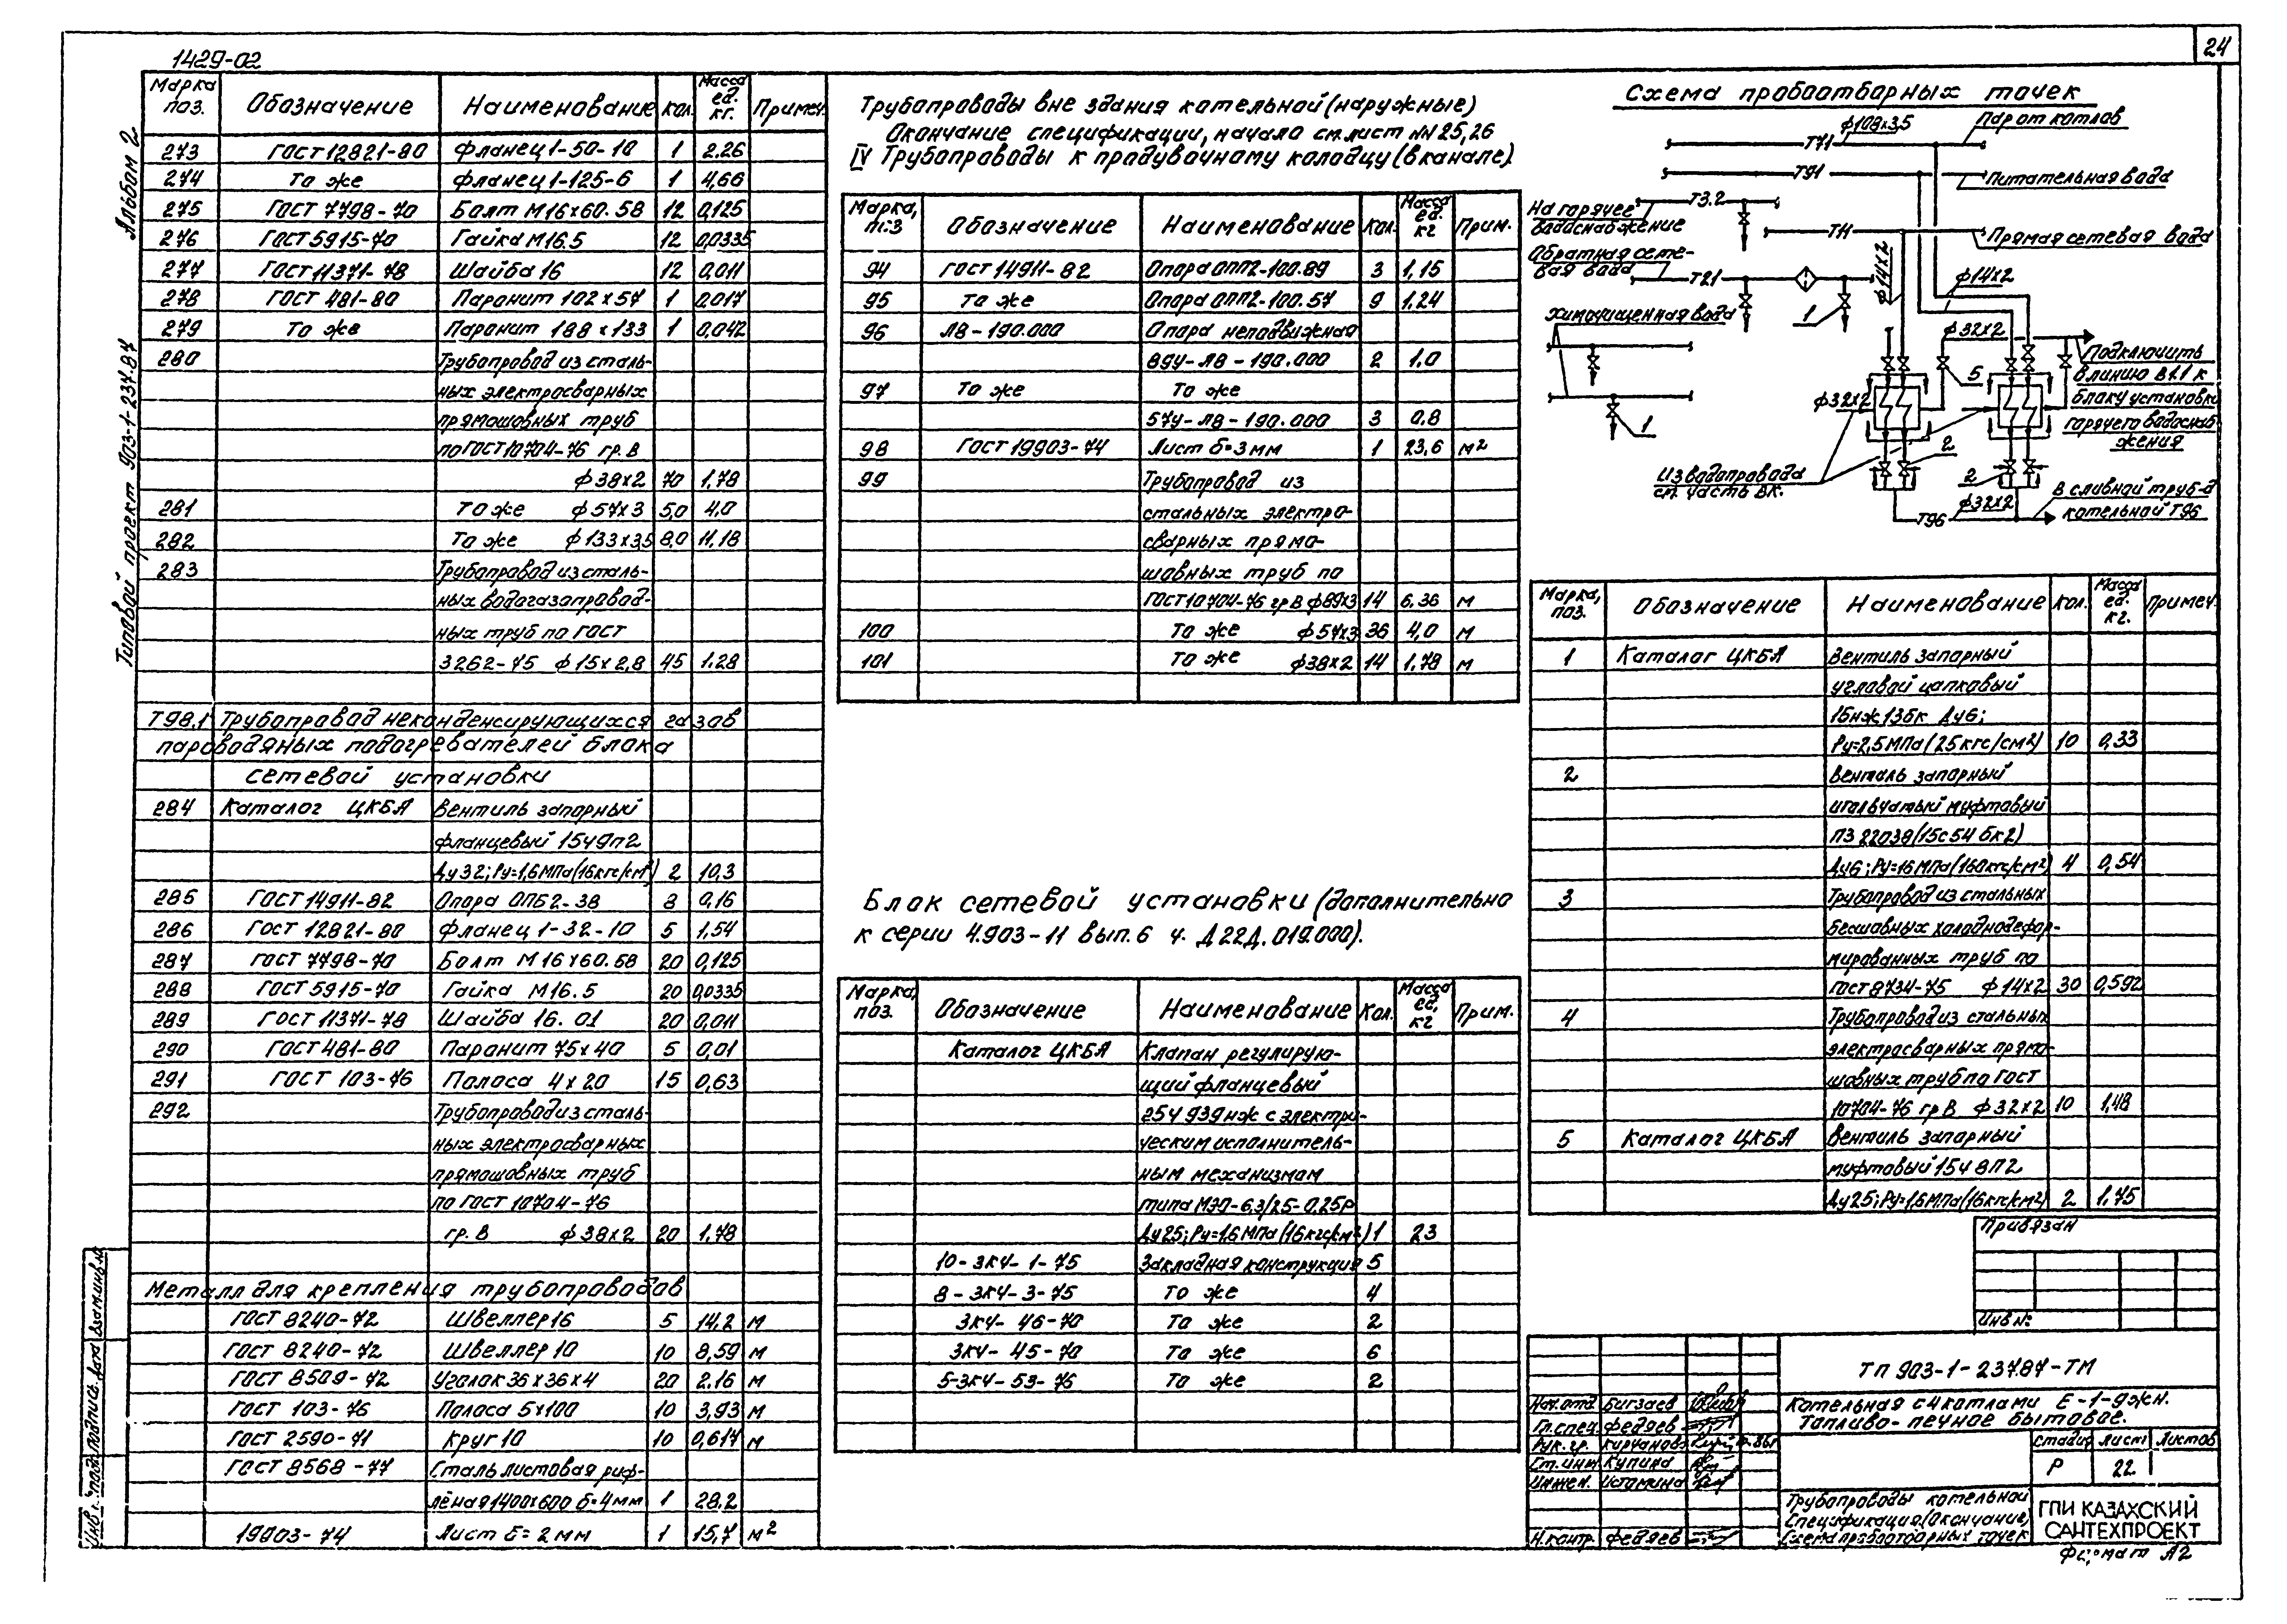 24
1429-02
Альбом 2
Типовой проект 903-1-237.87
Марка поз. Обозначение Наименование Кол. Масса ед. кг. Примеч.
273 ГОСТ 12821-80 Фланец 1-50-10 1 2.26
274 То же Фланец 1-125-6 1 4,66
275 ГОСТ 7798-70 Болт М16х60.58 12 0,125
276 ГОСТ 5915-70 Гайка М16.5 12 0,0335
277 ГОСТ 11371-78 Шайба 16 12 0,011
278 ГОСТ 481-80 Паронит 102х57 1 0,017
279 То же Паронит 188х133 1 0,042
280 Трубопровод из сталь-
ных электросварных
прямошовных труб
по ГОСТ 10704-76 гр. В
ф38х2 70 1,78
281 То же ф57х3 5,0 4,0
282 То же ф133х3,5 8,0 11,18
283 Трубопровод из сталь-
ных водогазопровод-
ных труб по ГОСТ
3262-75 ф15х2,8 45 1.28
Т98.1 Трубопровод неконденсирующихся газов
пароводяных подогревателей блока
сетевой установки
284 Каталог ЦКБА Вентиль запорный
фланцевый 15ч9п2
Ду32; Ру=1,6МПа(16кгс/см²) 2 10,3
285 ГОСТ 14911-82 Опора ОПБ2-38 8 0,16
286 ГОСТ 12821-80 Фланец 1-32-10 5 1,54
287 ГОСТ 7798-70 Болт М16х60.58 20 0,125
288 ГОСТ 5915-70 Гайка М16.5 20 0,0335
289 ГОСТ 11371-78 Шайба 16.01 20 0,011
290 ГОСТ 481-80 Паронит 75х40 5 0,01
291 ГОСТ 103-76 Полоса 4х20 15 0,63
292 Трубопровод из сталь-
ных электросварных
прямошовных труб
по ГОСТ 10704-76
гр. В ф38х2 20 1,78
Металл для крепления трубопроводов
ГОСТ 8240-72 Швеллер 16 5 14,2 м
ГОСТ 8240-72 Швеллер 10 10 8,59 м
ГОСТ 8509-72 Уголок 36х36х4 20 2.16 м
ГОСТ 103-76 Полоса 5х100 10 3,93 м
ГОСТ 2590-71 Круг 10 10 0,617 м
ГОСТ 8568-77 Сталь листовая риф-
лёная 1400х600 δ=4мм 1 28.2
19903-74 Лист δ=2мм 1 15,7 м²
Трубопроводы вне здания котельной (наружные)
Окончание спецификации, начало см. лист NN 25,26
IV Трубопроводы к продувочному колодцу (в канале)
Марка, поз Обозначение Наименование Кол. Масса ед. кг Прим.
94 ГОСТ 14911-82 Опора ОПП2-100.89 3 1,15
95 То же Опора ОПП2-100.57 9 1.24
96 Л8-190.000 Опора неподвижная
89У-Л8-190.000 2 1.0
97 То же То же
57У-Л8-190.000 3 0.8
98 ГОСТ 19903-74 Лист δ=3мм 1 23,6 м²
99 Трубопровод из
стальных электро-
сварных прямо-
шовных труб по
ГОСТ 10704-76 гр В ф89х3 14 6.36 м
100 То же ф57х3 36 4,0 м
101 То же ф38х2 14 1,78 м
Блок сетевой установки (дополнительно
к серии 4.903-11 вып. 6 ч. Д22Д.019.000).
Марка, поз. Обозначение Наименование Кол. Масса ед, кг Прим.
Каталог ЦКБА Клапан регулирую-
щий фланцевый
25ч 939нж с электри-
ческим исполнитель-
ным механизмом
типа МЭО-6,3/25-0,25Р
Ду25; Ру=1,6МПа(16кгс/см²) 1 23
10-ЗК4-1-75 Закладная конструкция 5
8-ЗК4-3-75 То же 4
ЗК4-46-70 То же 2
ЗК4-45-70 То же 6
5-ЗК4-53-76 То же 2
Схема пробоотборных точек
ф108х3,5
Пар от котлов
Т71
Т91
Питательная вода
На горячее
водоснабжение
Т3.2
Т11
Прямая сетевая вода
Обратная сете-
вая вода
Т21
ф14х2
ф14х2
1
Химочищенная вода
ф32х2
Подключить
в линию В1.1 к
блоку установки
горячего водоснаб
жения
5
ф32х2
1
2
Из водопровода
см. часть ВК.
2
ф32х2
Т96
В сливной труб-д
котельной Т96
Марка, поз. Обозначение Наименование Кол. Масса ед. кг. Примеч.
1 Каталог ЦКБА Вентиль запорный
угловой цапковый
15нж13бк Ду6;
Ру=2,5МПа(25кгс/см²) 10 0,33
2 Вентиль запорный
игольчатый муфтовый
ПЗ 22038(15с54 бк2)
Ду6; Ру=16МПа(160кгс/см²) 4 0,54
3 Трубопровод из стальных
бесшовных холоднодефор-
мированных труб по
ГОСТ 8734-75 ф14х2 30 0,592
4 Трубопровод из стальных
электросварных прямо-
шовных труб по ГОСТ
10704-76 гр В ф32х2 10 1,48
5 Каталог ЦКБА Вентиль запорный
муфтовый 15ч 8П2
Ду25; Ру=1,6МПа(16кгс/см²) 2 1.75
Привязан
Инв №:
ТП 903-1-237.87-ТМ
Котельная с 4 котлами Е-1-9жн.
Топливо-печное бытовое.
Нач.отд Бигзаев
Гл.спец. Федяев
Рук. гр.
Ст. инж Купина
Инжен. Истомина
Н.контр. Федяев
Стадия Лист Листов
Р 22
Трубопроводы котельной
Спецификация (окончание)
Схема пробоотборных точек
ГПИ КАЗАХСКИЙ
САНТЕХПРОЕКТ
Формат А2
Инв. подл. Подпись дата Взам.инв.№